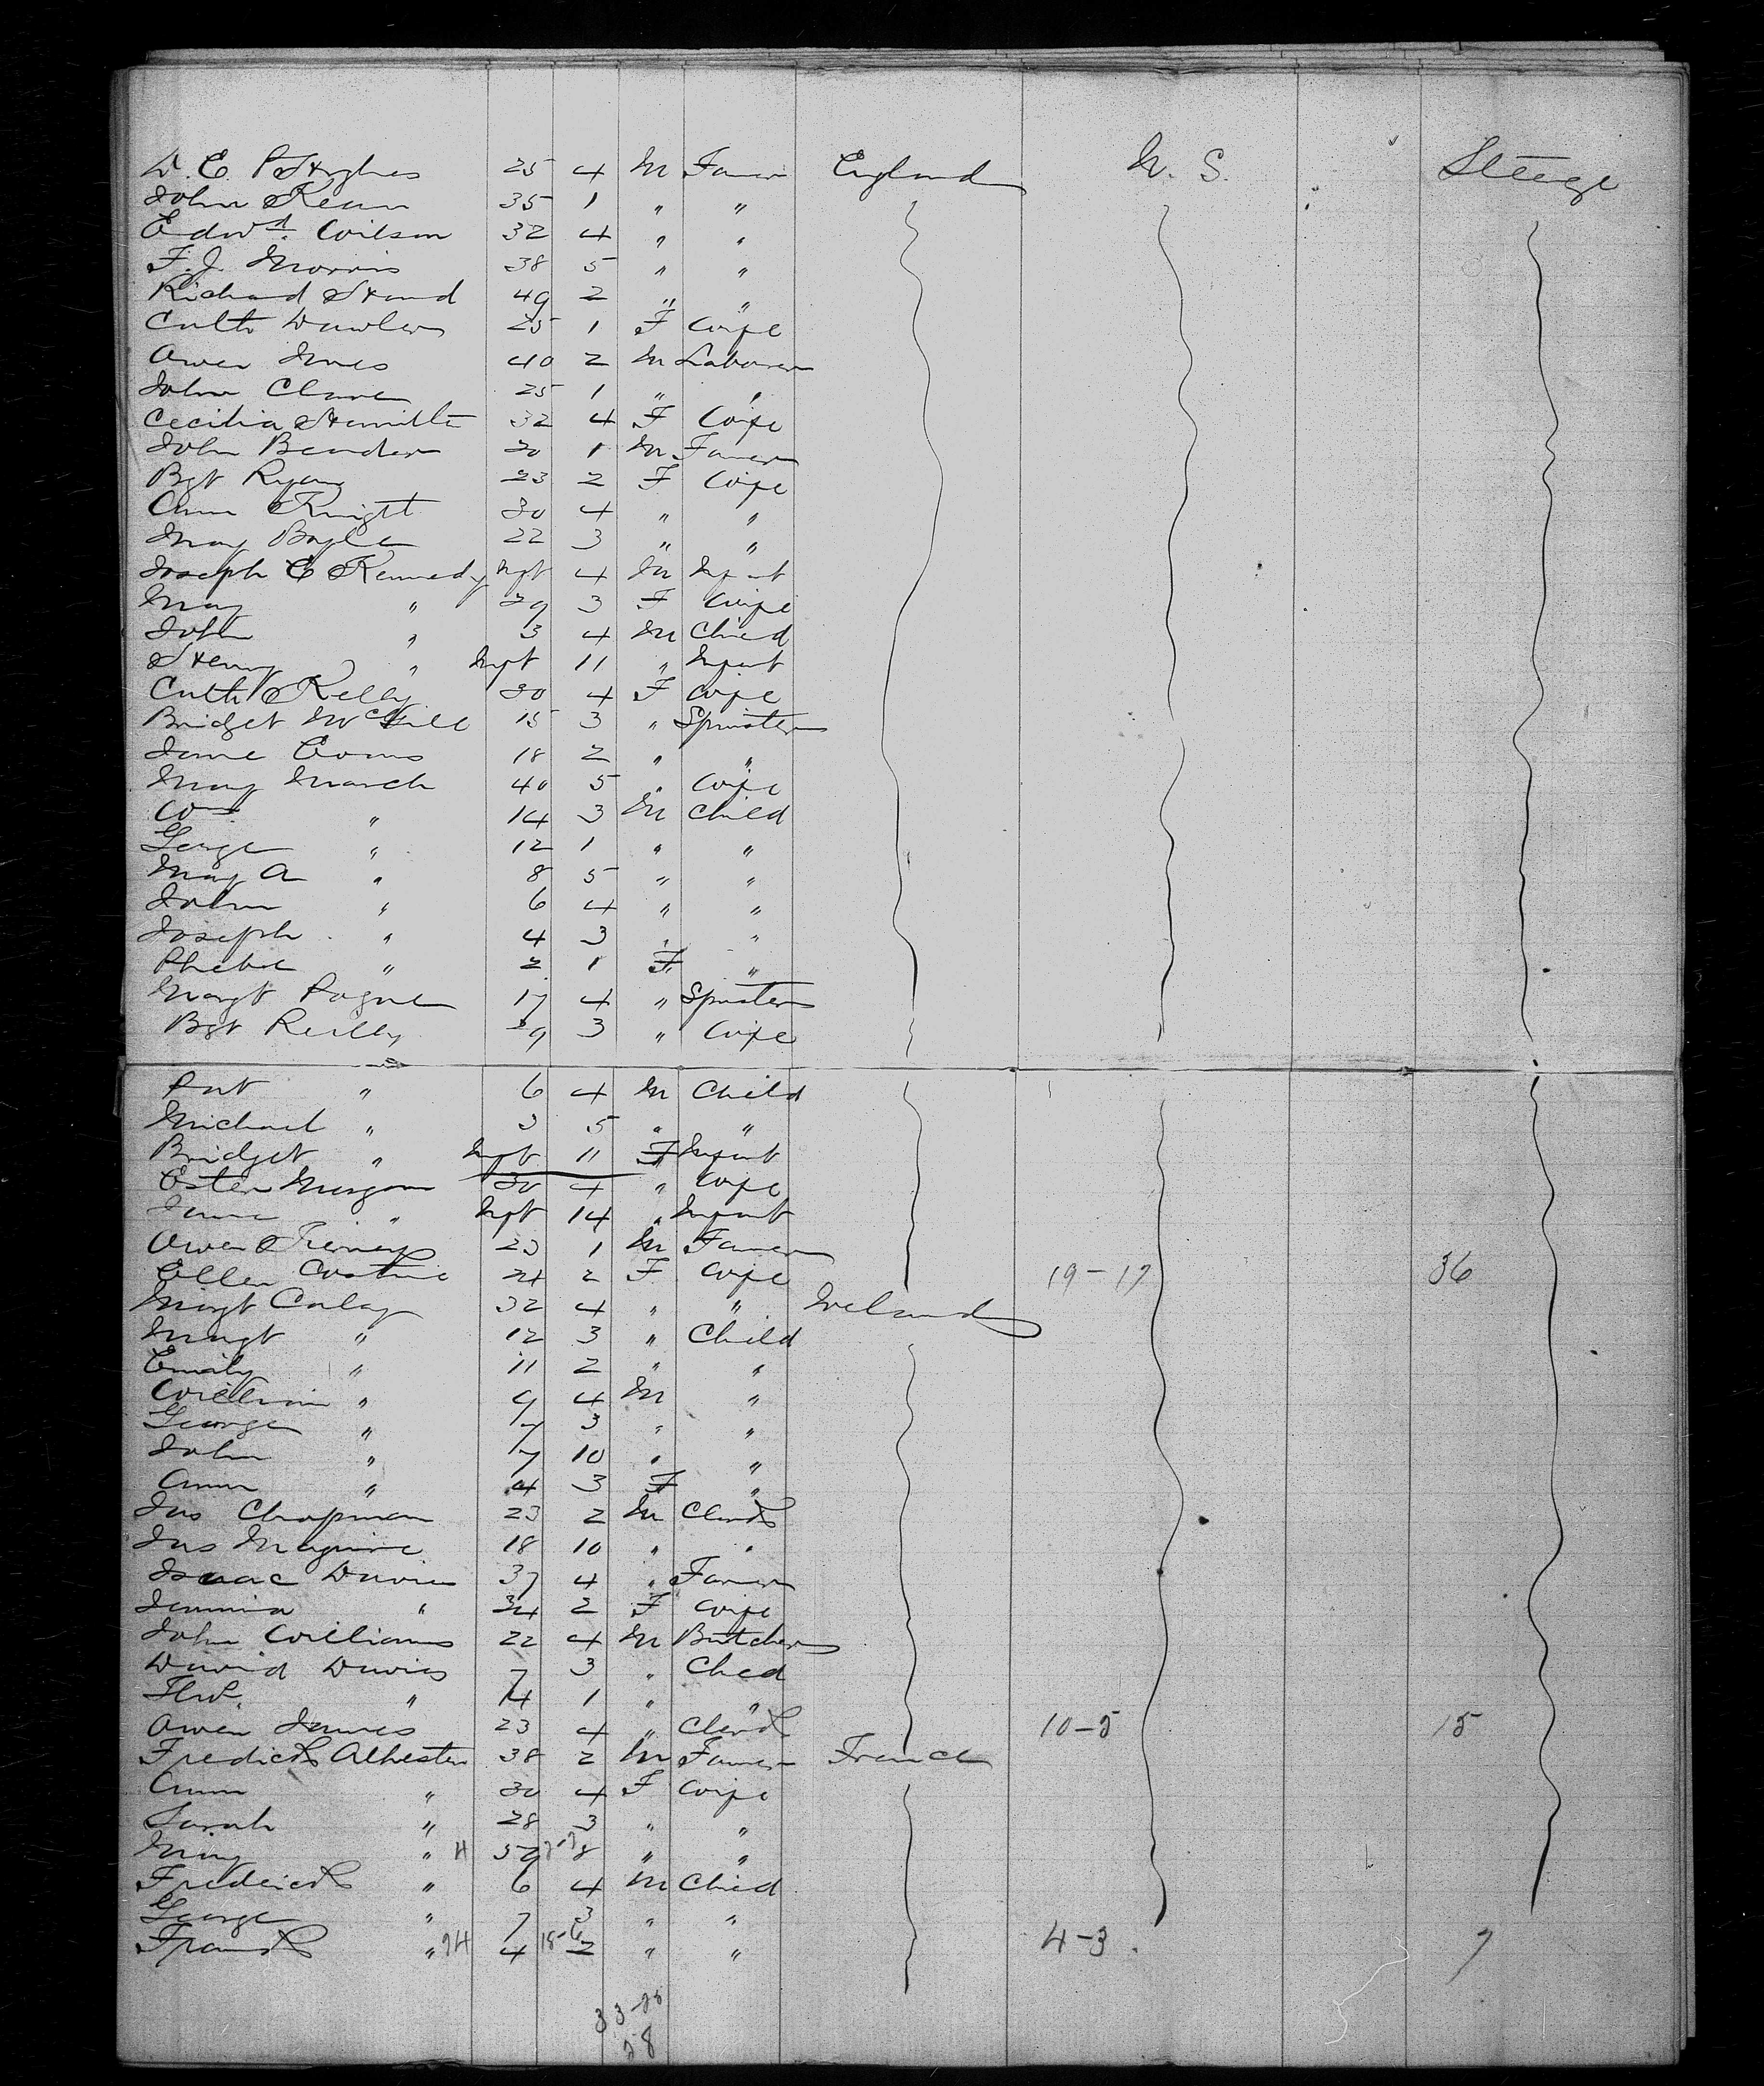 D. E. P. Hughes 25 4 M Farmer England U.S. Steerage
John Kean 35 1 " "
Edwd. Wilson 32 4 " "
F. J. Morris 38 5 " "
Richard Hand 49 2 " "
Cath Dawler 25 1 F Wife
Owen Innes 40 2 M Laborer
John Clare 25 1 " "
Cecilia Hamilt 32 4 F Wife
John Bender 30 1 M Farmer
Bgt Ryan 23 2 F Wife
Ann Knight 30 4 " "
Mary Boyle 22 3 " "
Joseph C Kennedy Inft 4 M Infant
Mary " 29 3 F Wife
John " 3 4 M Child
Henry " Inft 11 " Infant
Cath Kelly 30 4 F Wife
Bridget McGill 15 3 " Spinster
Jane Evans 18 2 " "
Mary March 40 5 " Wife
Wm " 14 3 M Child
George " 12 1 " "
Mary A " 8 5 " "
John " 6 4 " "
Joseph " 4 3 " "
Phebe " 2 1 F "
Margt Pogue 17 4 " Spinster
Bgt Reilly 29 3 " Wife
Pat " 6 4 M Child
Michael " 3 5 " "
Bridget " Inft 11 F Infant
Ester Morgan 30 4 " Wife
Jane " Inft 14 " Infant
Owen Kierney 23 1 M Farmer
Ellen Costine 24 2 F Wife 19-17 36
Margt Conlay 32 4 " " Ireland
Margt " 12 3 " Child
Emily " 11 2 " "
William " 9 4 M "
George " 7 3 " "
John " 7 10 " "
Ann " 4 3 F "
Jas Chapman 23 2 M Clerk
Jas Maguire 18 10 " "
Isaac Davies 37 4 " Farmer
Jemima " 34 2 F Wife
John Williams 22 4 M Butcher
David Davies 7 3 " Child
" 4 1 " "
Owen James 23 4 " Clerk 10-5 15
Fredick Alhester 38 2 M Farmer France
Ann " 30 4 F Wife
Sarah " 28 3 " "
May " 8 " "
Frederick " 6 4 M Child
George " 7 3 " "
Frank " 4 2 " " 4-3 7
28